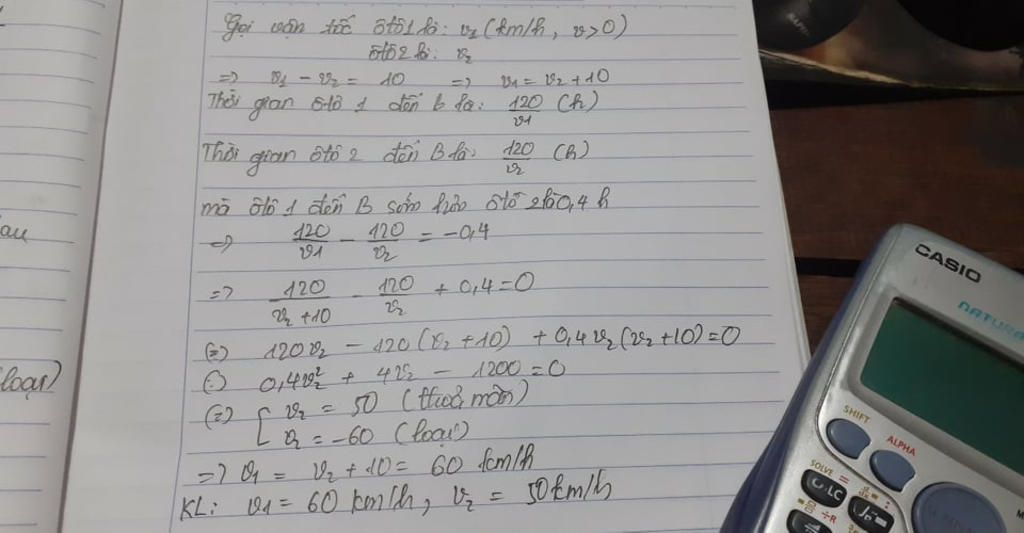 Gọi vận tốc ôtô 1 là: v₁ (km/h, v>0)
ôtô 2 là: v₂
=> v₁ - v₂ = 10 => v₁ = v₂ + 10
Thời gian ôtô 1 đến B là: 120/v₁ (h)
Thời gian ôtô 2 đến B là: 120/v₂ (h)
mà ôtô 1 đến B sớm hơn ôtô 2 là 0,4 h
=> 120/v₁ - 120/v₂ = -0,4
=> 120/(v₂ + 10) - 120/v₂ + 0,4 = 0
(=) 120v₂ - 120(v₂ + 10) + 0,4v₂(v₂ + 10) = 0
(=) 0,4v₂² + 4v₂ - 1200 = 0
(=) [ v₂ = 50 (thoả mãn)
v₂ = -60 (loại)
=> v₁ = v₂ + 10 = 60 km/h
KL: v₁ = 60 km/h, v₂ = 50 km/h
au
loại)
CASIO
NATURA
SHIFT
ALPHA
SOLVE =
CALC
÷R